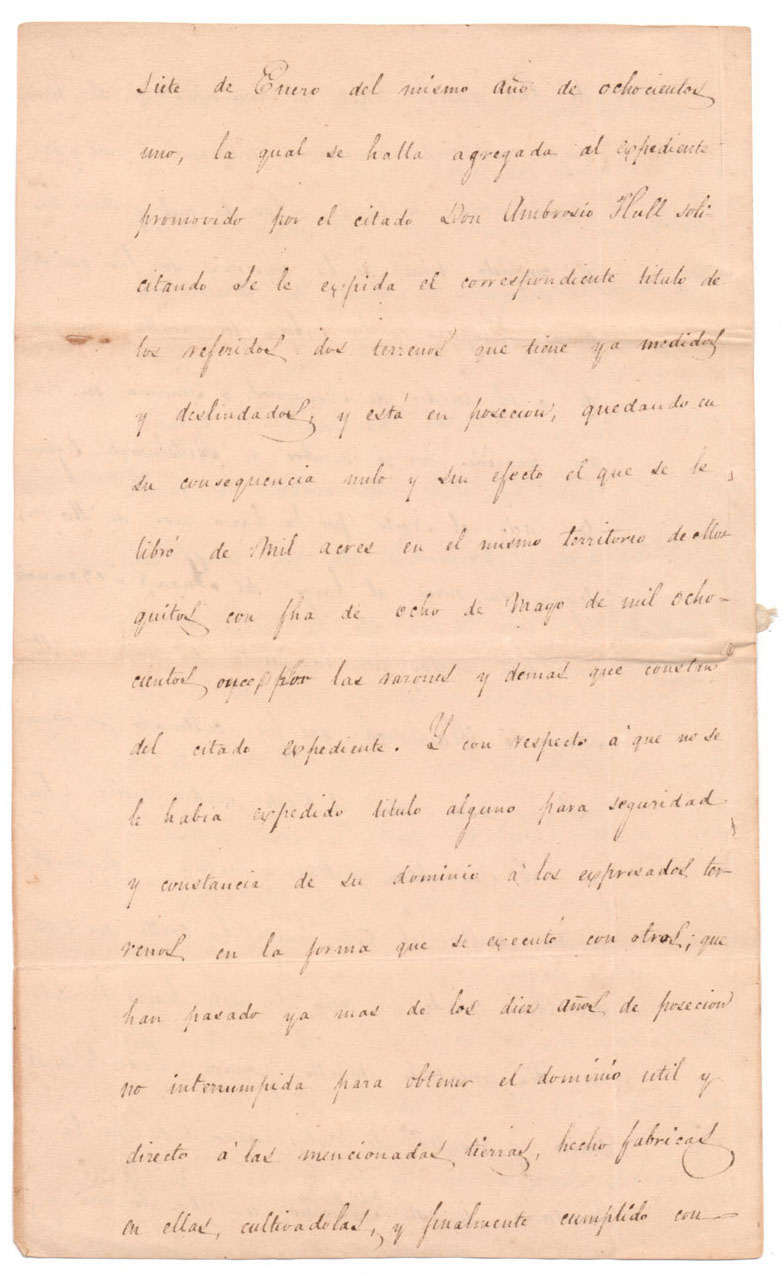 siete de Enero del mismo año de ochocientos
uno, la qual se halla agregada al expediente
promovido por el citado Don Ambrosio Hull soli-
citando se le expida el correspondiente titulo de
los referidos dos terrenos que tiene ya medidos
y deslindados, y está en posecion, quedando en
su consequencia nulo y sin efecto el que se le
libró de Mil acres en el mismo territorio de Mos-
quitos con fha de ocho de Mayo de mil ocho-
cientos once, por las rarones y demas que constan
del citado expediente. Y con respecto á que no se
le habia expedido titulo alguno para seguridad
y constancia de su dominio á los expresados ter-
renos en la forma que se executó con otros; que
han pasado ya mas de los diez años de posecion
no interrumpida para obtener el dominio util y
directo á las mencionadas tierras, hecho fabricas
en ellas, cultivadolas, y finalmente cumplido con